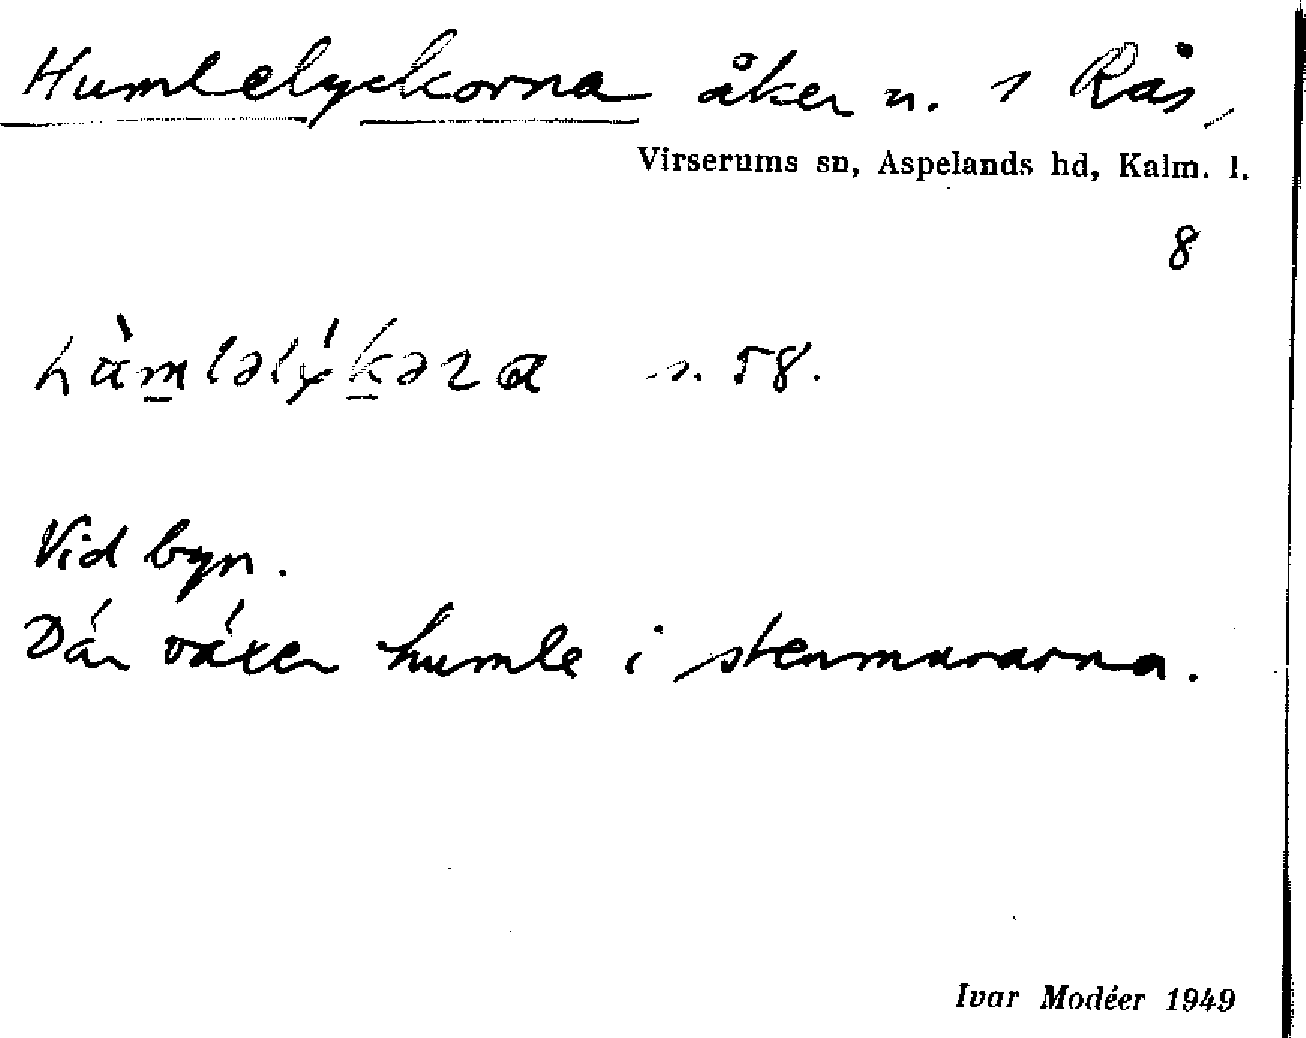 Humlelyckorna åker n. 1 Rås,
Virserums sn, Aspelands hd, Kalm. l.
8
s. 58.
Vid byn.
Där växer humle i stenmurarna.
Ivar Modéer 1949